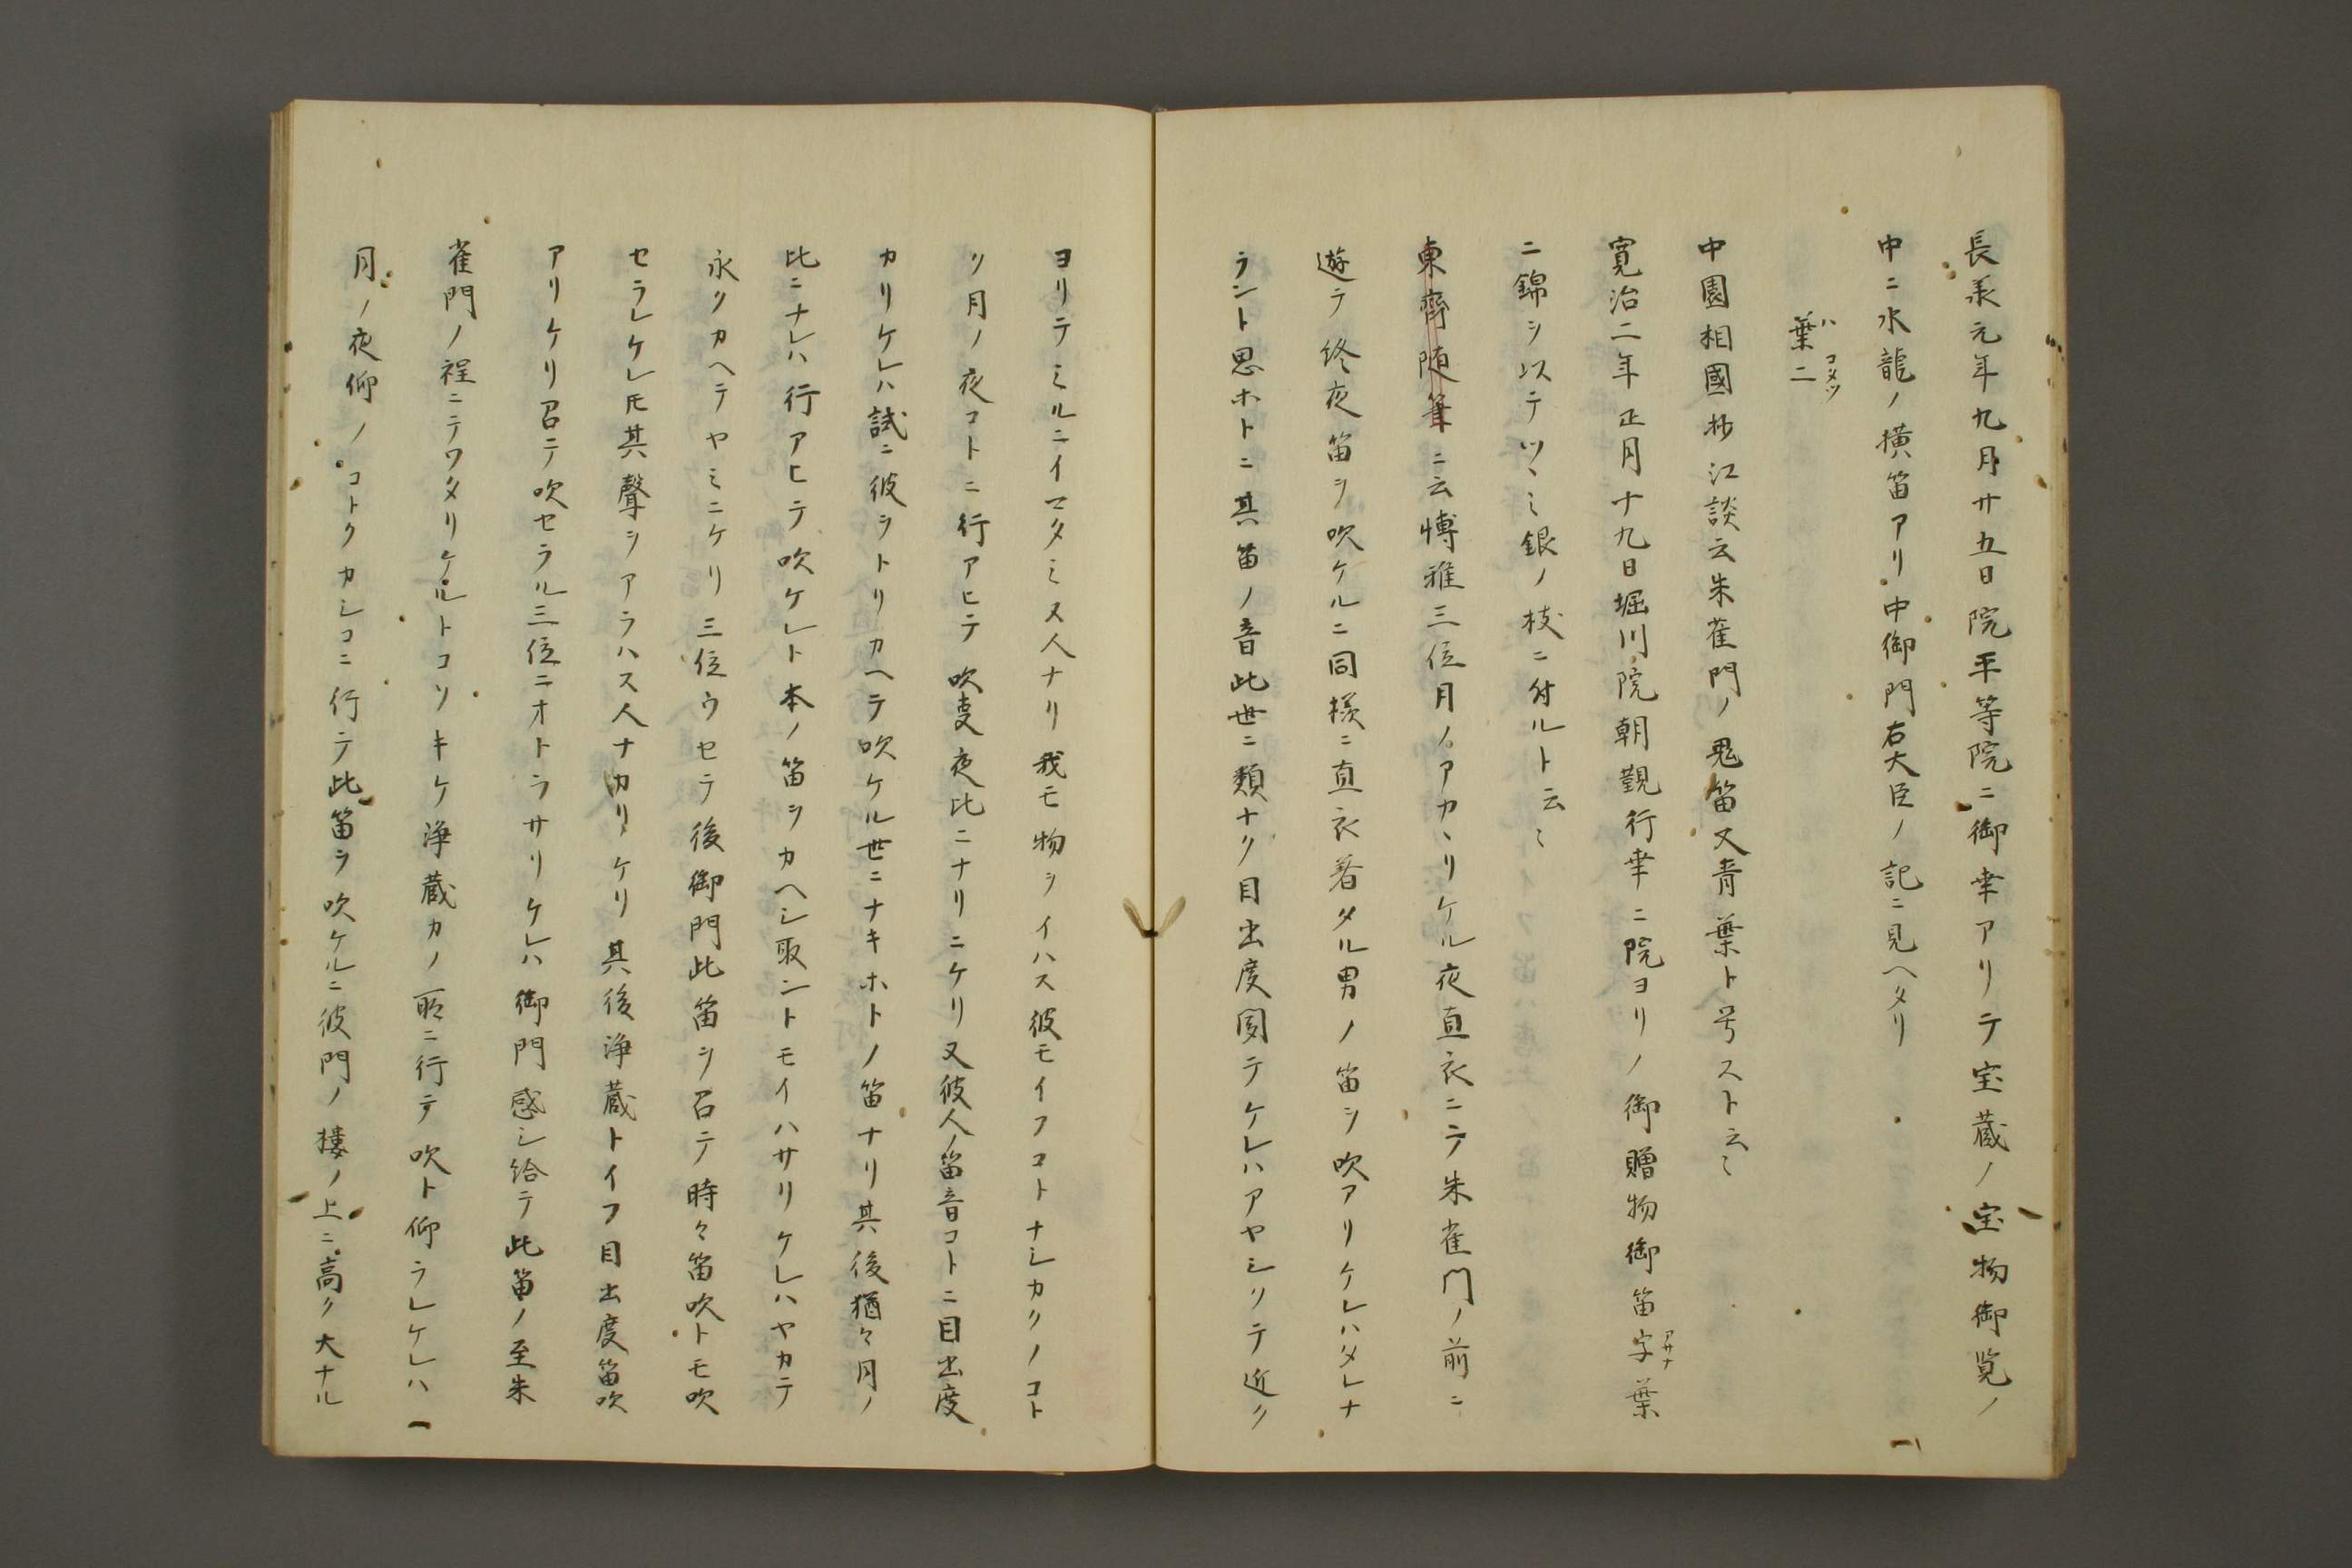 長承元年九月廿五日院平等院ニ御幸アリテ宝蔵ノ宝物御覧ノ
中ニ水龍ノ横笛アリ中御門右大臣ノ記ニ見ヘタリ
葉二
ハ コメツ
中園相國抄江談云朱雀門ノ鬼笛又青葉ト号スト云〻
寛治二年正月十九日堀川院朝覲行幸ニ院ヨリノ御贈物御笛字葉
アサナ
二錦ヲ以テツヽミ銀ノ枝ニ付ルト云〻
東齊随筆ニ云博雅三位月ノアカヽリケル夜直衣ニテ朱雀門ノ前ニ
遊テ終夜笛ヲ吹ケルニ同様ニ直衣着タル男ノ笛ヲ吹アリケレハタレナ
ラント思ホトニ其笛ノ音此世ニ類ナク目出度聞テケレハアヤシクテ近ク
ヨリテミルニイマタミヌ人ナリ我モ物ヲイハス彼モイフコトナシカクノコト
ク月ノ夜コトニ行アヒテ吹事夜比ニナリニケリ又彼人ノ笛音コトニ目出度
カリケレハ試ニ彼ヲトリカヘテ吹ケル世ニナキホトノ笛ナリ其後猶々月ノ
比ニナレハ行アヒテ吹ケレト本ノ笛ヲカヘシ取ントモイハサリケレハヤカテ
永クカヘテヤミニケリ三位ウセテ後御門此笛ヲ召テ時々笛吹トモ吹
セラレケレ𪜈其聲ヲアラハス人ナカリケリ其後浄蔵トイフ目出度笛吹
アリケリ召テ吹セラル三位ニオトラサリケレハ御門感シ給テ此笛ノ至朱
雀門ノ程ニテワタリケルトコソキケ浄蔵カノ所ニ行テ吹ト仰ラレケレハ
月ノ夜仰ノコトクカシコニ行テ此笛ヲ吹ケルニ彼門ノ楼ノ上ニ高ク大ナル